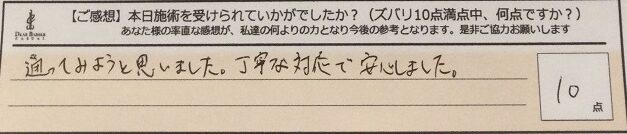 【ご感想】本日施術を受けられていかがでしたか？（ズバリ10点満点中、何点ですか？）
あなた様の率直な感想が、私達の何よりの力となり今後の参考となります。是非ご協力お願いします
通ってみようと思いました。丁寧な対応で安心しました。
10点